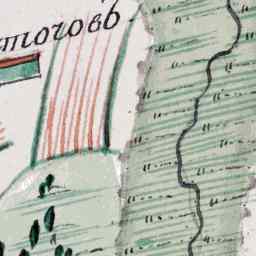 точовъ